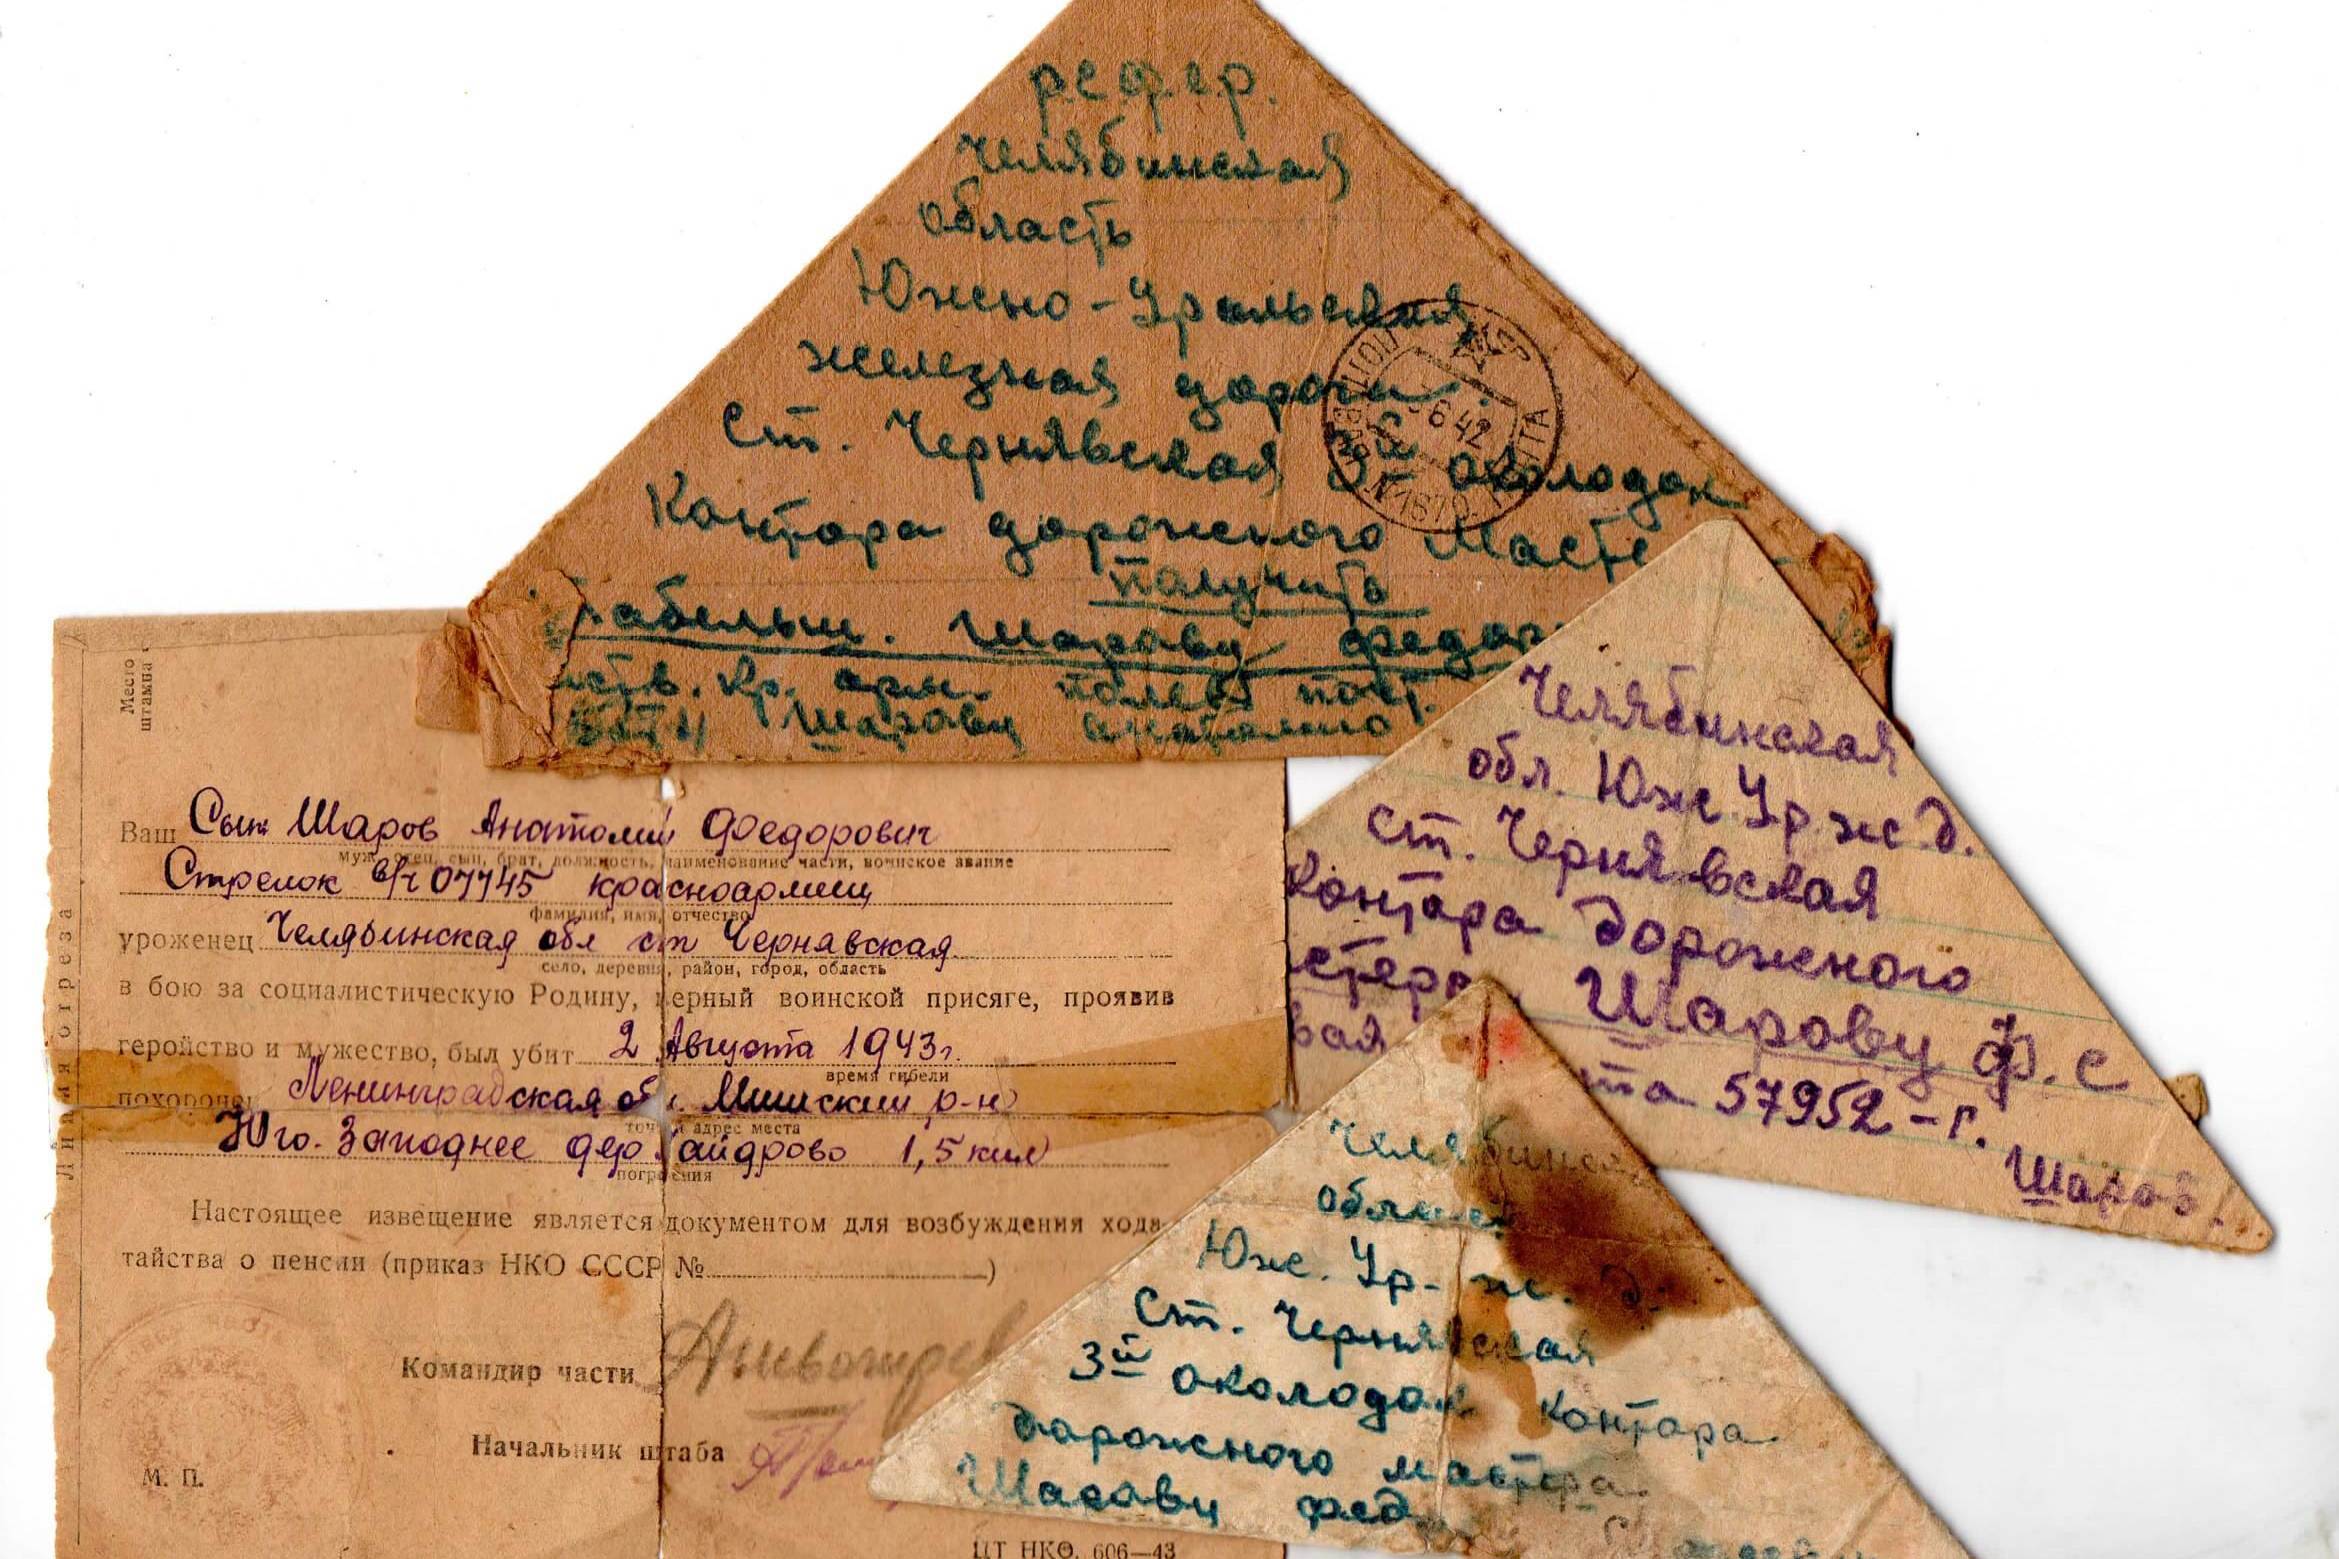 р.с.ф.с.р.
Челябинская
область
Южно-Уральская
железная дорога.
ст. Чернявская 3й околодок
Контора дорожного Масте
получить
табельщ. Шарову Федор
Кр. арм. полев почт.
Шарову Анатолию
6 42
N1879.
Челябинская
обл. Юж. Ур. ж. д.
ст. Чернявская
контора Дорожного
стера Шарову Ф. С
вая та 57952-г. Шаров.
Место
штампа
Линия отреза
Ваш Сын Шаров Анатолий Федорович
муж, отец, сын, брат, должность, наименование части, воинское звание
Стрелок в/ч 07745 красноармеец
фамилия, имя, отчество
уроженец Челябинская обл ст Чернявская
село, деревня, район, город, область
в бою за социалистическую Родину, верный воинской присяге, проявив
геройство и мужество, был убит 2 Августа 1943г.
время гибели
похоронен Ленинградская об Мгинский р-н
точный адрес места
Юго. Западнее дер Гайдрово 1,5 килм
погребения
Настоящее извещение является документом для возбуждения хода-
тайства о пенсии (приказ НКО СССР № )
Командир части
Начальник штаба
М. П.
ЦТ НКО. 606—43
Челябинск
област
Юж. Ур- ж. д.
Ст. Чернявская
3й околодок контора
дорожного мастера
Шарову Фед